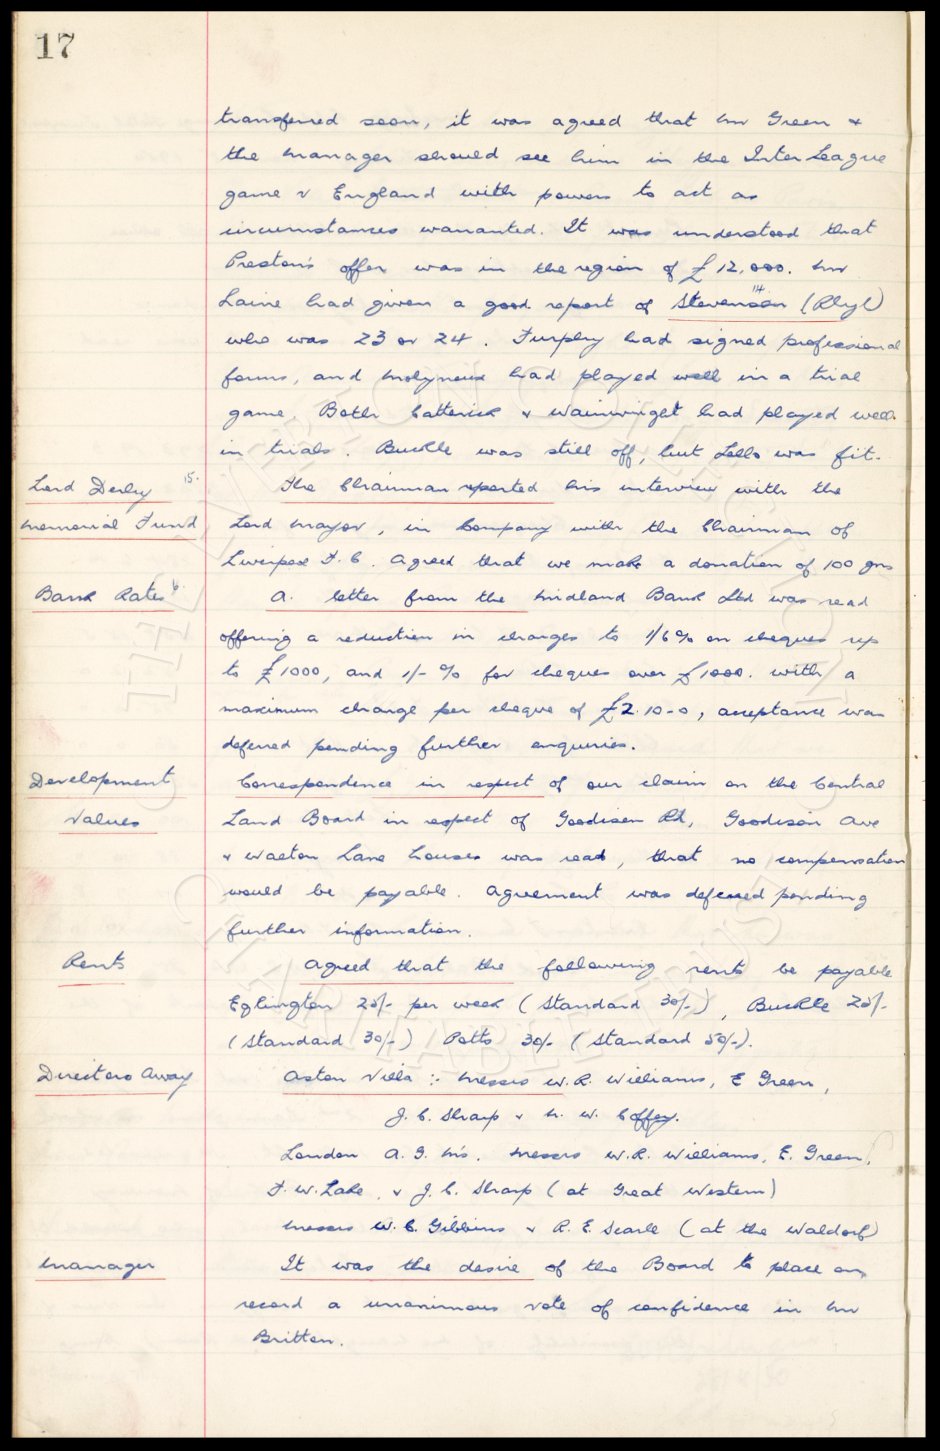 17
transferred soon, it was agreed that Mr Green &
the Manager should see him in the Inter League
game v England with powers to act as
circumstances warranted. It was understood that
Preston's offer was in the region of £12,000. Mr
Laine had given a good report of Stevenson (Rhyl)
14
who was 23 or 24. Furphy had signed professional
forms, and Molyneux had played well in a trial
game. Both Catterick & Wainwright had played well
in trials. Buckle was still off, but Lello was fit.
Lord Derby 15. The Chairman reported his interview with the
Memorial Fund Lord Mayor, in Company with the Chairman of
Liverpool F.C. Agreed that we make a donation of 100 gns
Bank Rates 6. A letter from the Midland Bank Ltd was read
offering a reduction in charges to 1/6% on cheques up
to £1000, and 1/- % for cheques over £1000. with a
maximum charge per cheque of £2.10-0, acceptance was
deferred pending further enquiries.
Development Correspondence in respect of our claim on the Central
Values Land Board in respect of Goodison Rd, Goodison Ave
& Walton Lane houses was read, that no compensation
would be payable. Agreement was deferred pending
further information.
Rents Agreed that the following rents be payable
Eglington 25/- per week (Standard 30/-), Buckle 25/-
(Standard 30/-) Potts 30/- (Standard 50/-).
Directors Away Aston Villa :- Messrs W.R. Williams, E Green,
J.C. Sharp & N. W. Coffey.
London A.G.M's. Messrs W.R. Williams, E. Green,
F.W. Lake, & J.C. Sharp (at Great Western)
Messrs W.C. Gibbins & R.E. Searle (at the Waldorf)
Manager It was the desire of the Board to place on
record a unanimous vote of confidence in Mr
Britton.
THE EVERTON COLLECTION
CHARITABLE TRUST